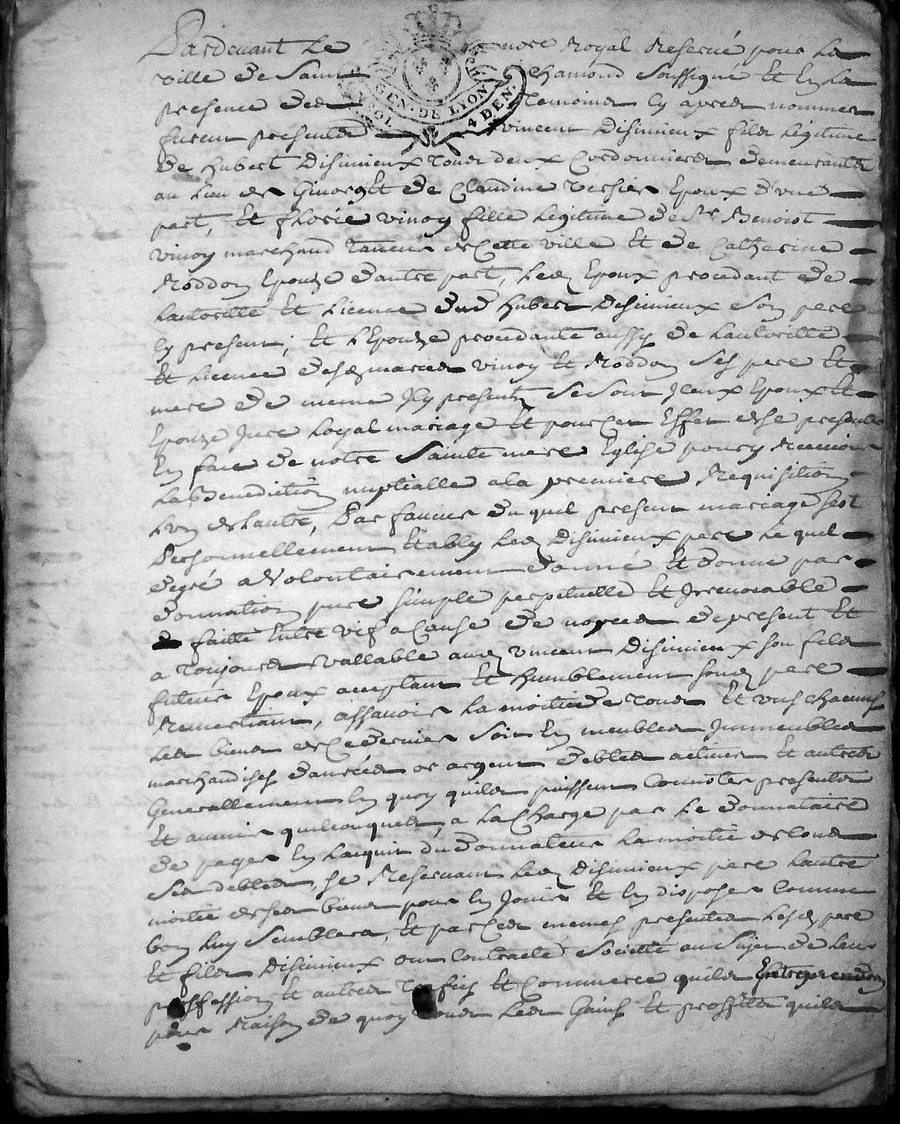 GEN. DE LYON
4 DEN.
Pardevant Le nore Royal Reservé pour La
ville de Saint Chamond soussigné Et En La
presence des Temoins Cy apres nommes
furent presents vincent Disimieux fils Legitime
de hubert Disimieux tous deux Cordonniers demeurants
au Lieu de Et de Claudine versier Epoux d'une
part, Et vinoy fille Legitime de Sr Benoist
vinoy marchand taneur de Cette ville Et de Catherine
Roddon Epouze dautre part, Led Epoux procedant de
Lautoritté Et Licence dud hubert Disimieux Son pere
Cy present, Et LEpouze procedante aussy de Lautoritté
Et Licence desd maries vinoy Et Roddon Ses pere Et
mere de meme Icy presents Se Sont Iceux Epoux Et
Epouze Juré Loyal mariage Et pour Cet Effet de Se presenter
En face de notre Sainte mere Eglise pour y Recevoir
La Benedition nuptialle a la premiere Requisition
Lun de Lautre, Par faveur du quel present mariage Sest
Personnellement Etably Led Disimieux pere Le quel
de gré a Volontairement donné Et donne par
donnation pure simple perpetuelle Et Irrevocable
faitte Entre vifs a Cause de nopces de present Et
a toujours vallable aud vincent Disimieux Son fils
futeur Epoux acceptant Et humblement Sond pere
Remertiant, assavoir La moitié de tous Et uns Chacuns
Les biens de Ce dernier Soit En meubles Immeubles
marchandises danrées or argent debtes actives Et autres
Generallement En quoy quils puissent Concister presents
Et avenir quelconques, a La Charge par Le donnataire
de payer En Lacquit du donnateur La moitié de tous
Ses debtes, Se Reservant Led Disimieux pere Lautre
moitié de Ses biens pour En Jouir Et En disposer Comme
bon Luy Semblera, Et par Ces memes presentes Lesd pere
Et fils Disimieux ont Contracté Societté au Sujet de Leur
proffession Et autres traficqs Et Commerce quils Entreprendron
pour Raison de quoy tous Les Gains Et proffits quils